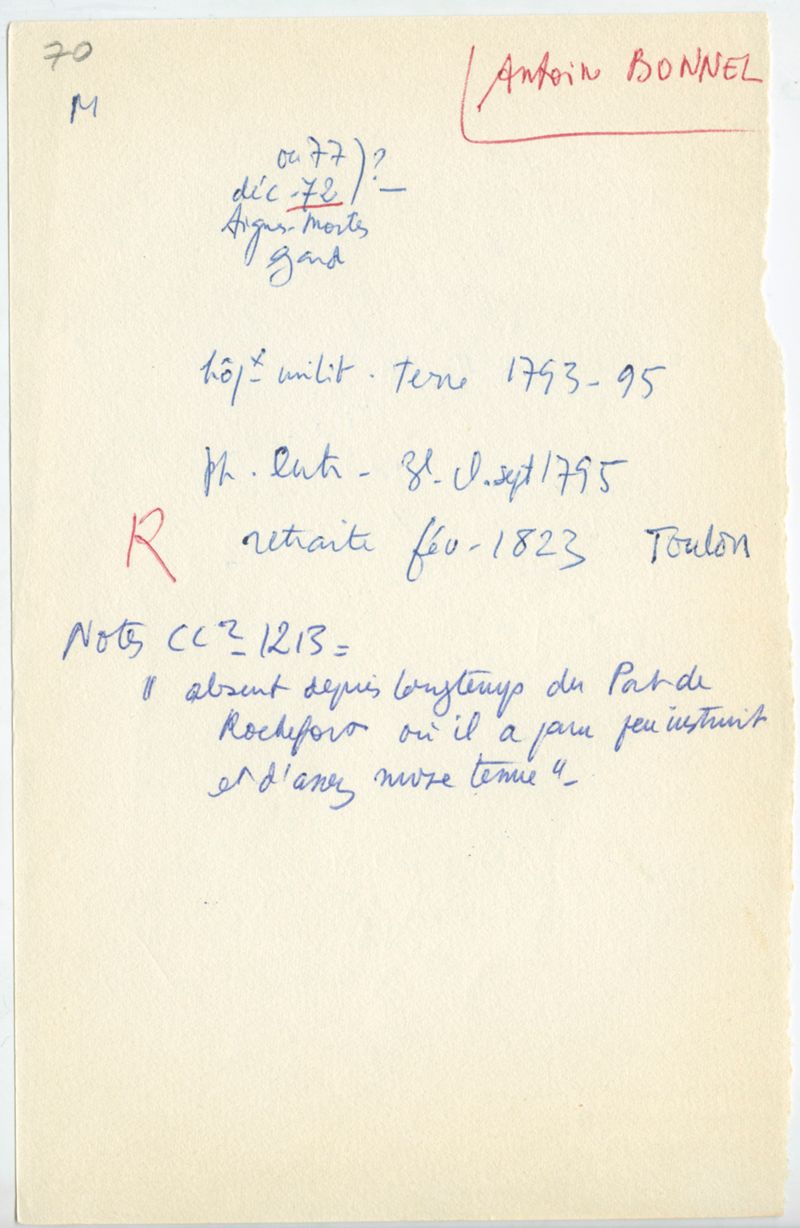 70
Antoine BONNEL
M
ou 77 ) ?
déc - 72
Aigues-Mortes
Gard
hôpx milit. terre 1793-95
ph. Entr - 3l. sept 1795
R retraite fév - 1823 Toulon
Notes CC2 - 1213 =
" absent depuis longtemps du Port de
Rochefort où il a paru peu instruit
et d'assez mvse tenue "-